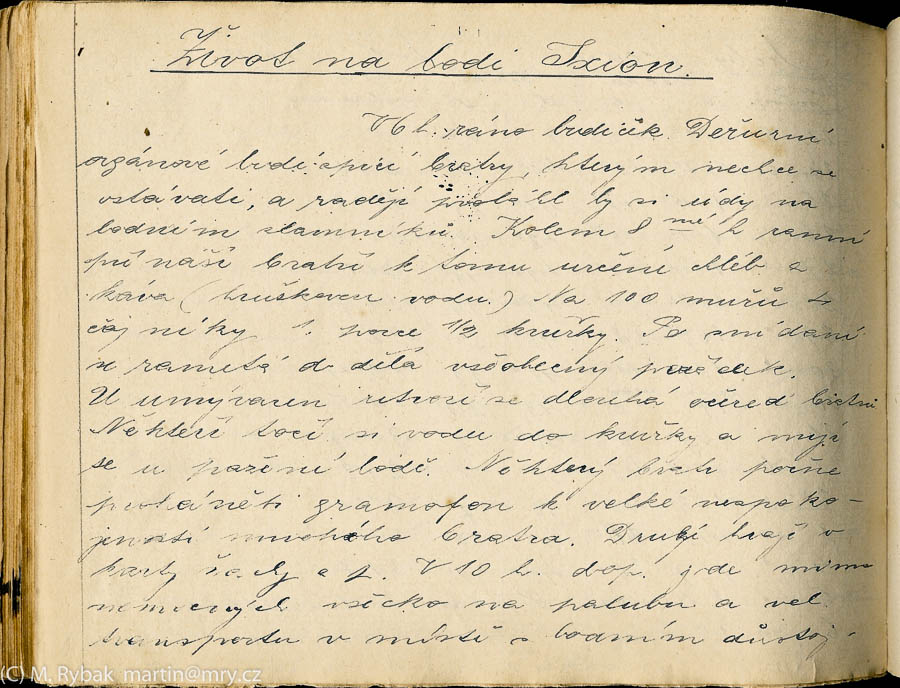 Život na lodi Ixion.
V 6 h. ráno budíček. Dežurní
orgánové budí spící bratry, kterým nechce se
vstávati, a raději by si údy na
lodním slamníku. Kolem 8 mé h ranní
přináší bratři k tomu určení chléb a
káva (hruškovou vodu.) Na 100 mužů 4
čajníky 1. porce 1/2 kružky. Po snídani
se zametá a dělá všeobecný pořádek.
U umývaren vytvoří se dlouhá očereď bratrů
Někteří točí si vodu do kružky a myjí
se u pažení lodě. Některý bratr počne
proháněti gramofon k velké nespoko-
jenosti mnohého bratra. Druzí hrají v
karty šachy a p. V 10 h. dop. jde mimo
nemocných všecko na palubu a vel.
transportu v místě s lodním důstoj-
(C) M. Rybak martin@mry.cz